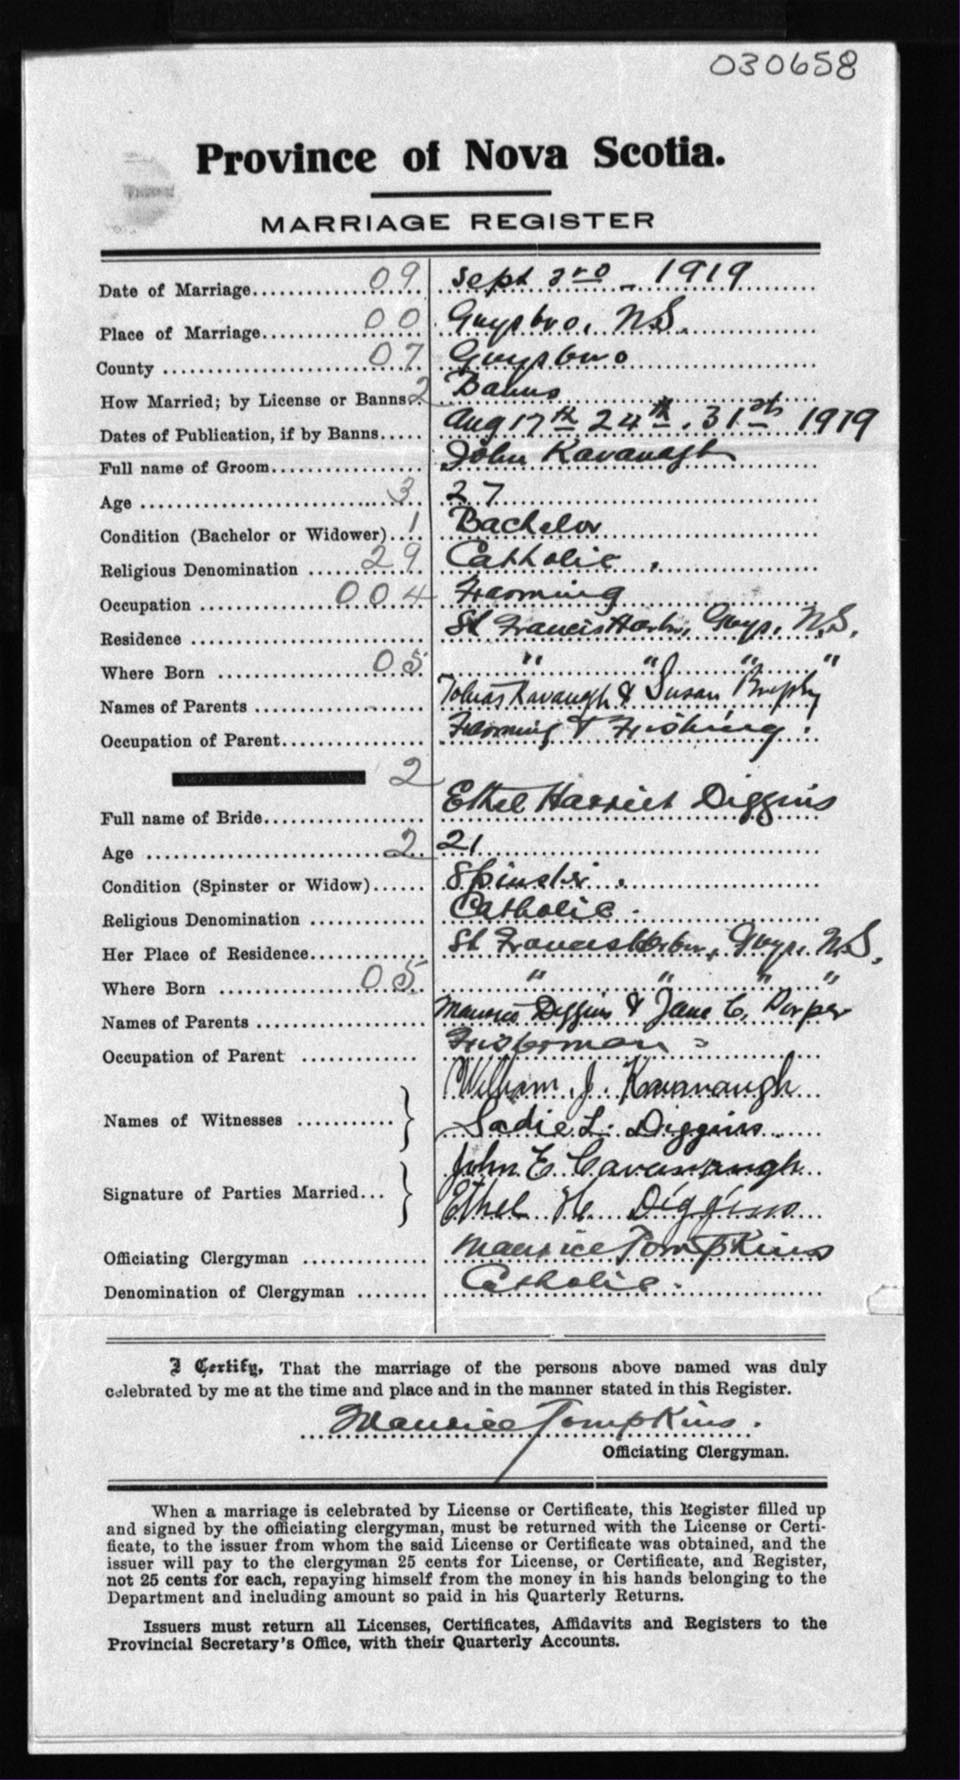 030658
Province of Nova Scotia.
MARRIAGE REGISTER
Date of Marriage 09 Sept 3rd 1919
Place of Marriage 00 Guysboro, N.S.
County 07 Guysboro
How Married; by License or Banns 2 Banns
Dates of Publication, if by Banns Aug 17th 24th, 31st 1919
Full name of Groom John Kavanagh
Age 3 27
Condition (Bachelor or Widower) 1 Bachelor
Religious Denomination 29 Catholic
Occupation 004 Farming
Residence St Francis Harbor, Guys, N.S.
Where Born 05 " " " "
Names of Parents Tobias Kavanagh & Susan
Occupation of Parent Farming & Fishing
2
Full name of Bride Ethel Harriet Diggins
Age 2 21
Condition (Spinster or Widow) Spinster
Religious Denomination Catholic
Her Place of Residence St Francis Harbor, Guys. N.S.
Where Born 05 " " " "
Names of Parents Maurice Diggins & Jane C.
Occupation of Parent Fisherman
William J. Kavanaugh
Names of Witnesses
Sadie L. Diggins
John E Cavanaugh
Signature of Parties Married
Ethel H. Diggins
Officiating Clergyman Maurice Tompkins
Denomination of Clergyman Catholic
I Certify, That the marriage of the persons above named was duly
celebrated by me at the time and place and in the manner stated in this Register.
Maurice Tompkins.
Officiating Clergyman.
When a marriage is celebrated by License or Certificate, this Register filled up
and signed by the officiating clergyman, must be returned with the License or Certi-
ficate, to the issuer from whom the said License or Certificate was obtained, and the
issuer will pay to the clergyman 25 cents for License, or Certificate, and Register,
not 25 cents for each, repaying himself from the money in his hands belonging to the
Department and including amount so paid in his Quarterly Returns.
Issuers must return all Licenses, Certificates, Affidavits and Registers to the
Provincial Secretary's Office, with their Quarterly Accounts.